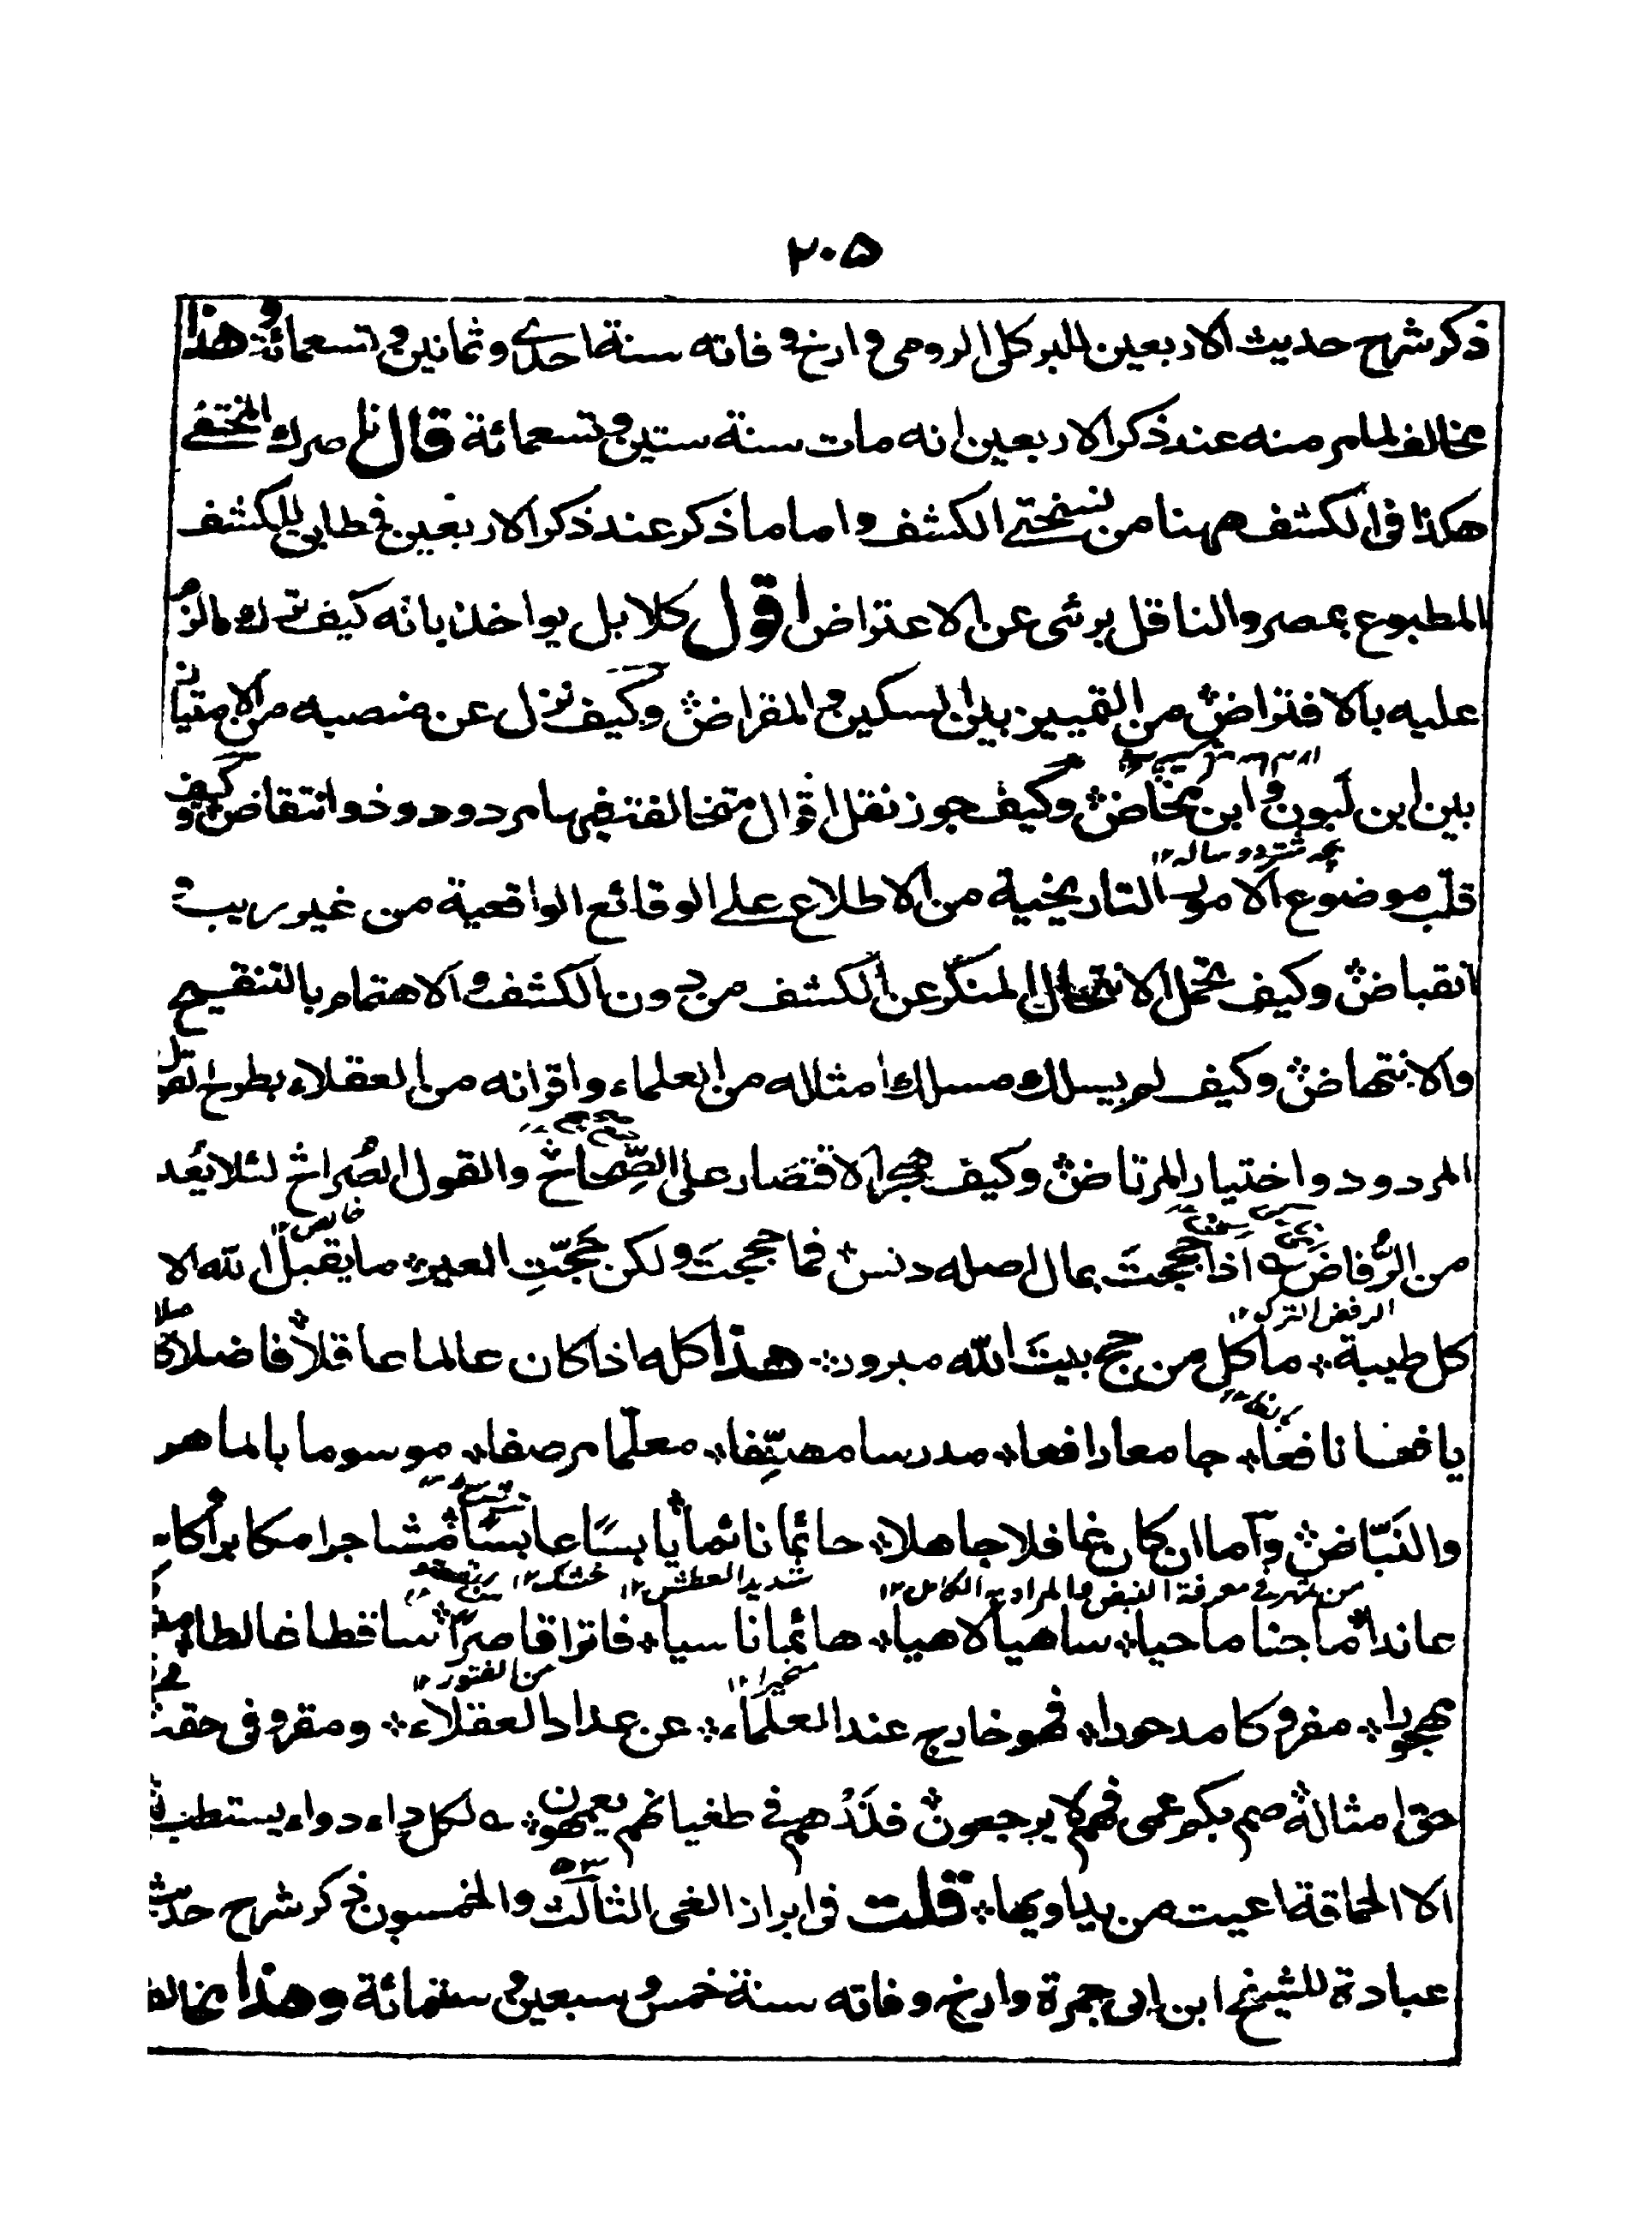 ٢٠٥
ذكر شرح حديث الاربعين للبركلى الرومى وارخ وفاته سنة احدى وثمانين وتسعمائة وهذا
مخالف لما مر منه عند ذكر الاربعين انه مات سنة ستين وتسعمائة قال ناصرك المختفى
هكذا فى الكشف ههنا من نسختى الكشف واما ما ذكر عند ذكر الاربعين فمطابق للكشف
المطبوع بمصر والناقل برئ عن الاعتراض اقول كلا بل يواخذ بانه كيف ترك ما لزم
عليه بالافتراض من التمييز بين السكين والمقراض وكيف نزل عن منصبه من الامتياز
بين ابن لبون وابن مخاض وكيف جوز نقل اقوال متخالفة فيها مردود وذو انتقاض وكيف
بچه شتر دو ساله ١٢
قلب موضوع الامور التاريخية من الاطلاع على الوقائع الواقعية من غير ريب و
انقباض وكيف تحمل الانتحال المنكر عن الكشف من دون الكشف والاهتمام بالتنقيح
والانتهاض وكيف لم يسلك مسلك امثاله من العلماء واقرانه من العقلاء بطرح القول
المردود واختيار المرتاض وكيف هجر الاقتصار على الصِّحاح والقول الصُراح لئلا يُعد
خالص ١٢
من الرُّفاض اذا حججتَ بمال اصله دنس فما حججتَ ولكن حَجّتِ العير ما يقبل الله الا
الرفض الترك ١٢
كل طيبة ما كل من حج بيتَ الله مبرور هذا كله اذا كان عالما عاقلا فاضلا كاملا
يافعا نافعا جامعا رافعا مدرسا مصنِّفا معلّما مرصفا موسوما بالماهر
والنَبّاض وآما ان كان غافلا جاهلا حائما نائما يابسًا عابسًا مشاجرا مكابرا
من تمهر فى معرفة النبض والمراد به الكامل ١٢ شديد العطش ١٢ خشك ١٢
عاندا ماجنا ماحيا ساهيا لاهيا هائما ناسيا فاترا قاصرا ساقطا خالطا
متحيرا ١٢ من الفتور ١٢
مهجورا متروكا مدحورا فهو خارج عند العلماء عن عداد العقلاء ومقرو فى حقه
حق امثاله صم بكم عمى فهم لا يرجعون فذَرْهم فى طغيانهم يعمهون لكل داء دواء يستطب به
الا الحماقة اعيت من يداويها قلت فى ابراز الغى الثالث والخمسون ذكر شرح حديث
عبادة للشيخ ابن ابى جمرة وارخ وفاته سنة خمس وسبعين وستمائة وهذا مخالف